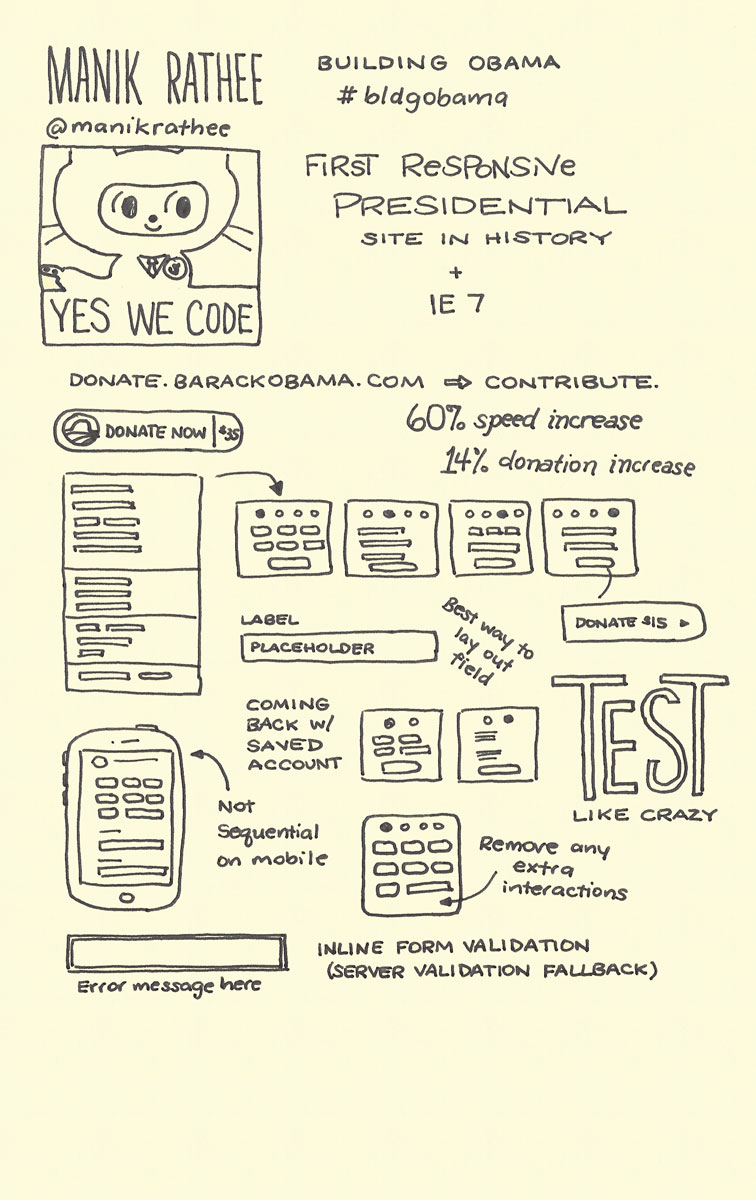 MANIK RATHEE
@manikrathee
BUILDING OBAMA
#bldgobama
YES WE CODE
FIRST ReSPoNSiVe
PRESIDENTIAL
SITE IN HISTORY
+
IE 7
DONATE.BARACKOBAMA.COM ⇒ CONTRIBUTE.
DONATE NOW | $35
60% speed increase
14% donation increase
DONATE $15 ▸
LABEL
PLACEHOLDER
Best way to
lay out
field
TEST
LIKE CRAZY
COMING
BACK W/
SAVED
ACCOUNT
Not
Sequential
on mobile
Remove any
extra
interactions
Error message here
INLINE FORM VALIDATION
(SERVER VALIDATION FALLBACK)